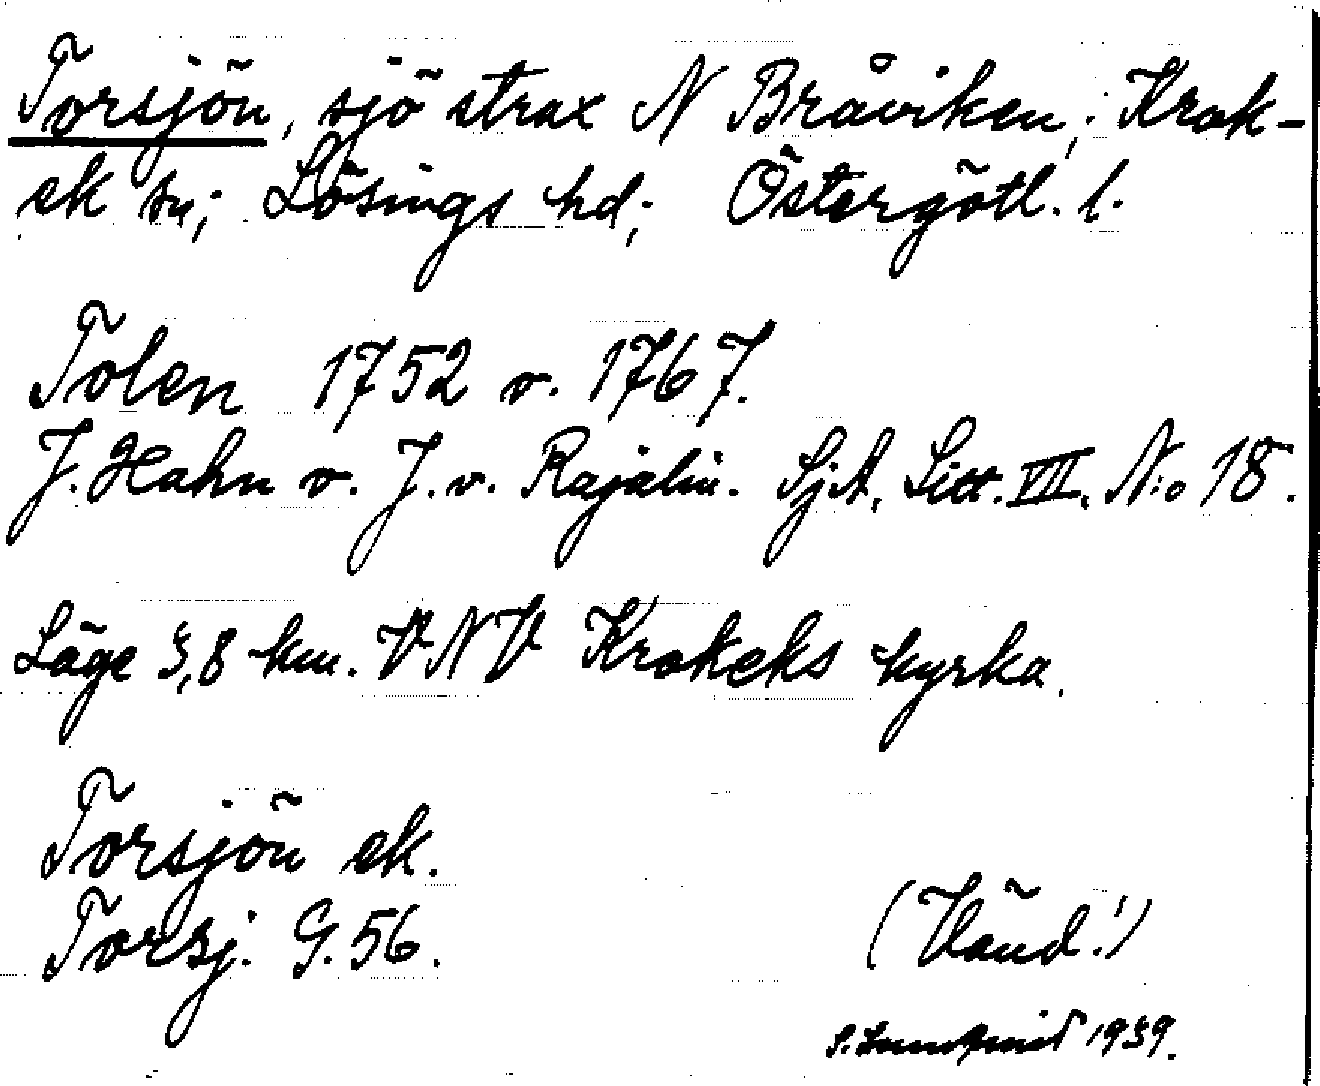 Torsjön, sjö strax N Bråviken; Krok-
ek sn; Lösings hd; Östergötl. l.
Tolen 1752 o. 1767.
J. Hahn o. J. v. Rajalin. SjA, Litt. VII, N:o 18.
Läge 3,8 km. VNV Krokeks kyrka.
Torsjön ek.
Torsj. G. 56.
(Vänd!)
1939.